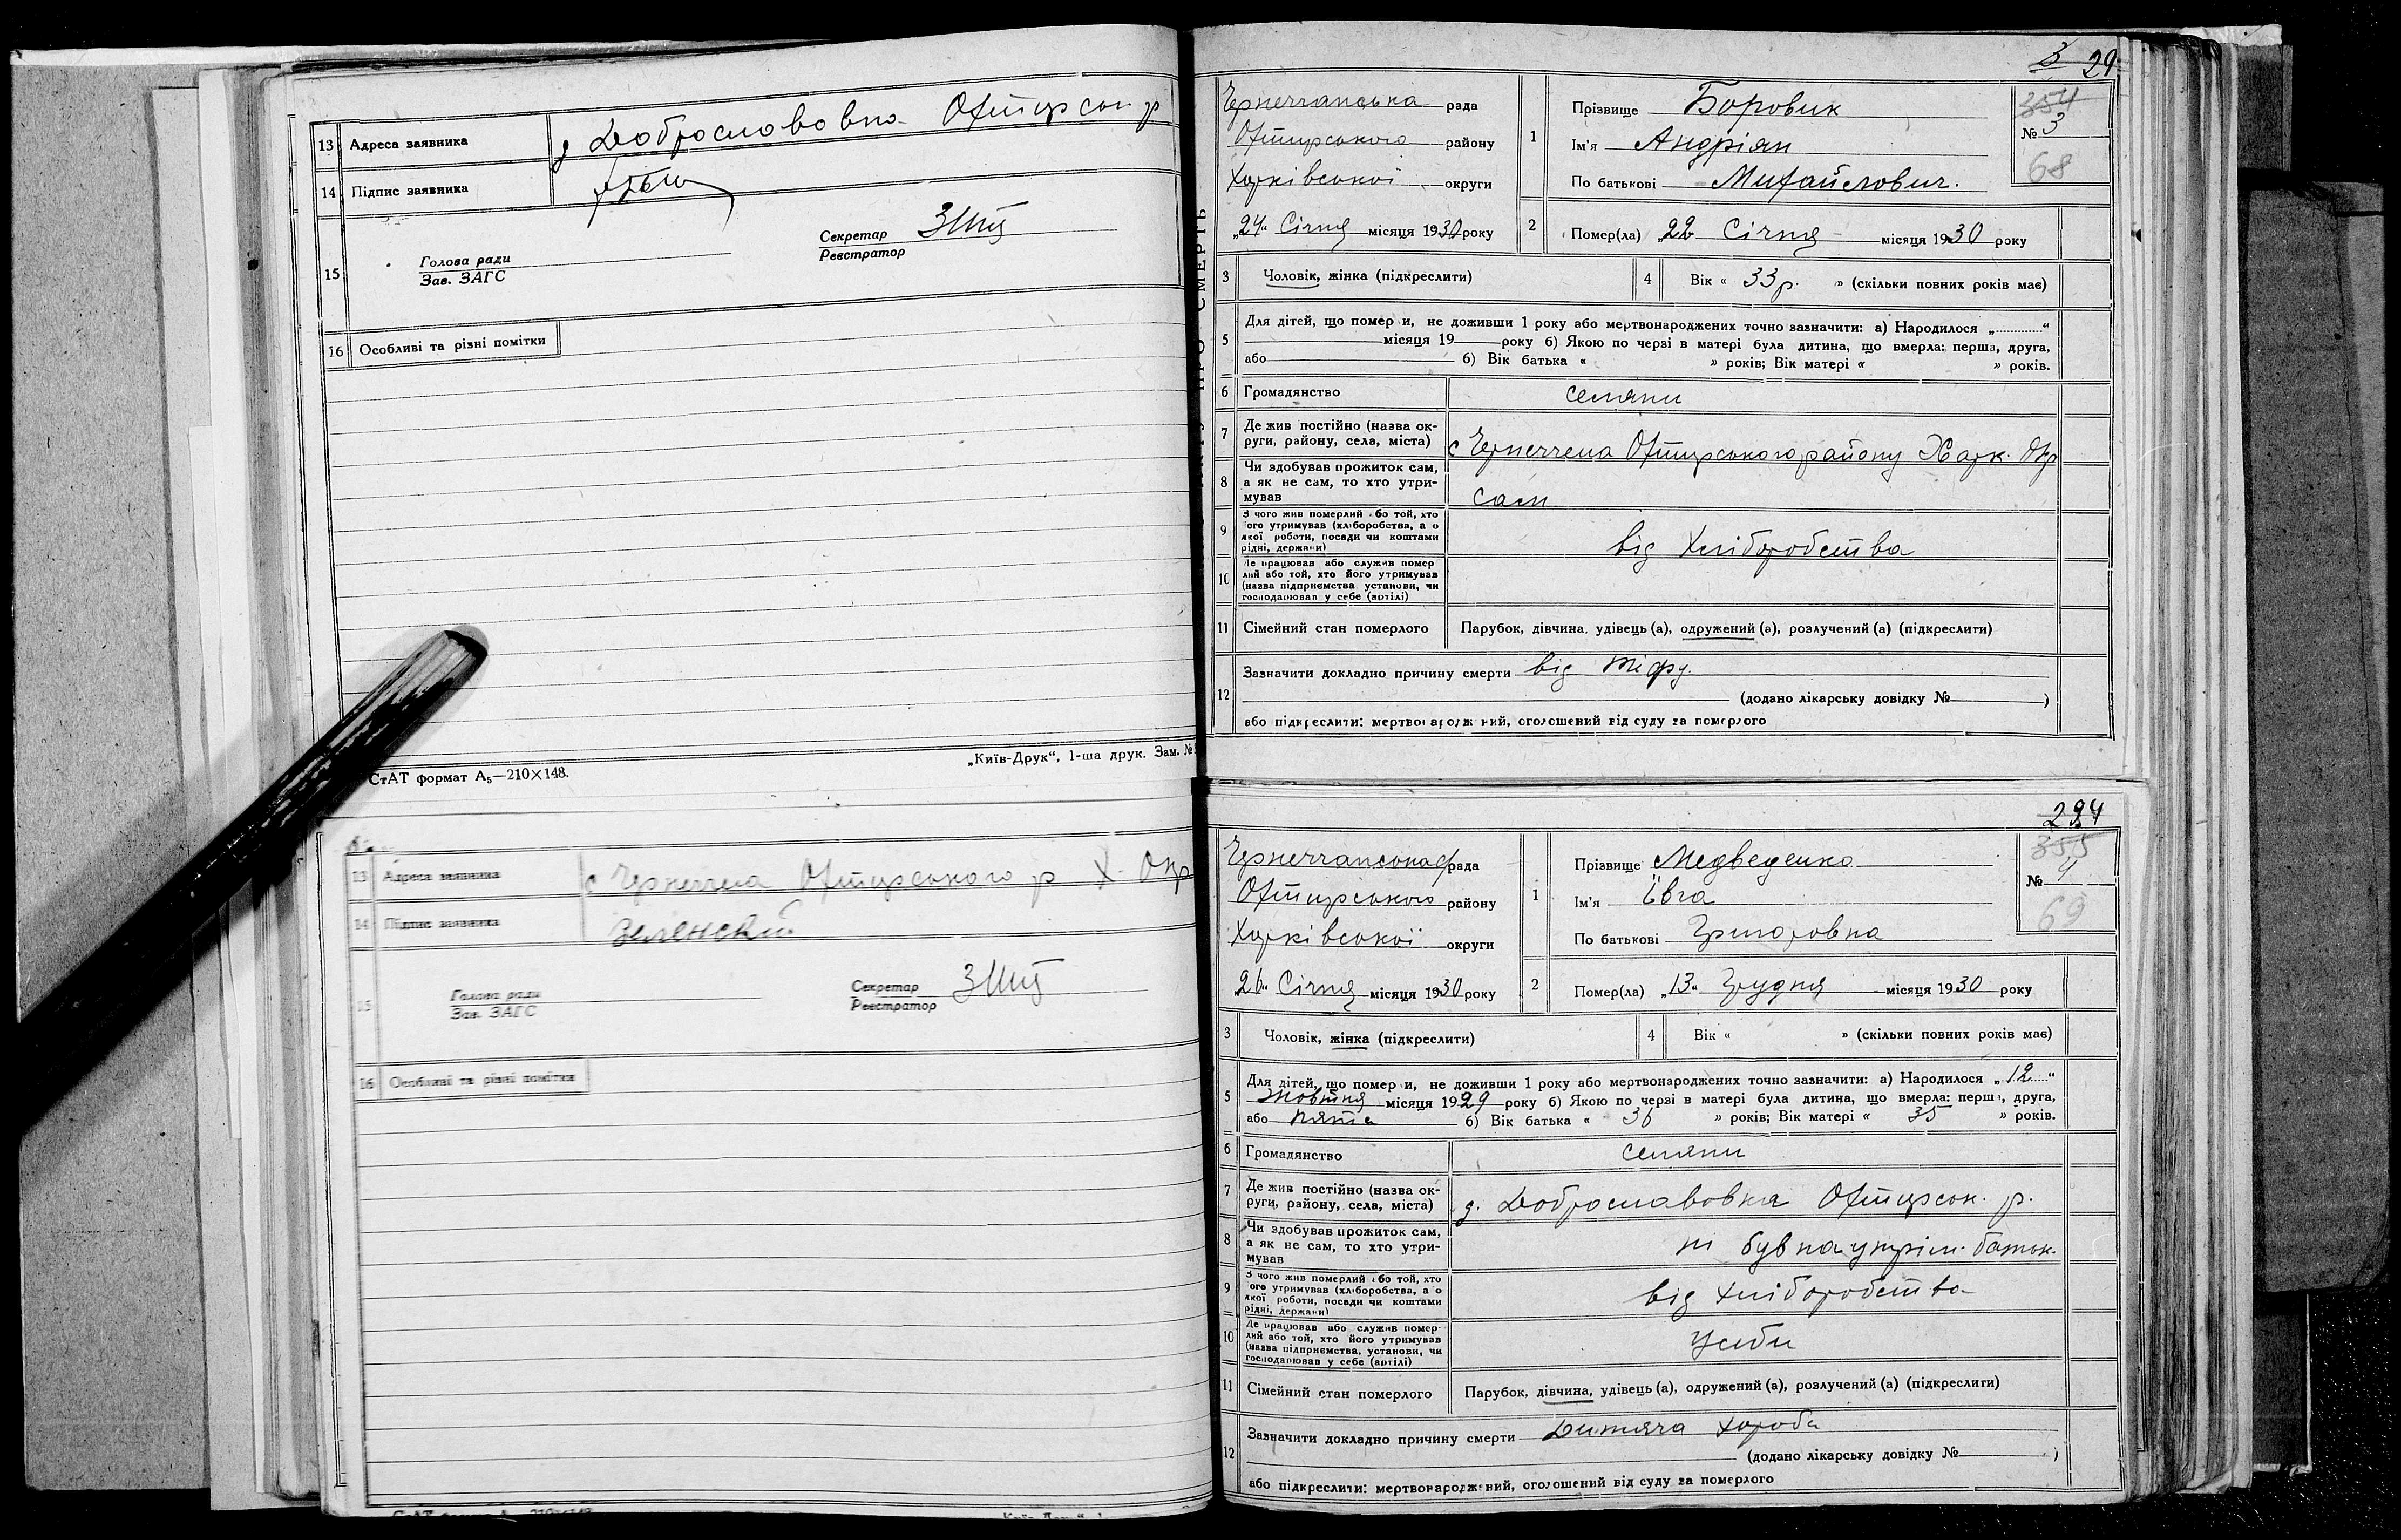 13 Адреса заявника д Доброславовка Охтирськ р
14 Підпис заявника
15 Голова ради
Зав. ЗАГС
Секретар
Реєстратор
16 Особливі та різні помітки
СтАТ формат А₅—210×148.
„Київ-Друк“, 1-ша друк. Зам. №
13 Адреса заявника с Чернеччена Охтирського р Х. Окр
14 Підпис заявника Зеленский
15 Голова ради
Зав. ЗАГС
Секретар
Реєстратор
16 Особливі та різні помітки
3 29
Чернеччанська рада
Охтирського району
Харківської округи
„24“ Січня місяця 1930 року
1 Прізвище Боровик
Ім'я Андріян
По батькові Михайлович.
354
№ 3
68
2 Помер(ла) „22 Січня місяця 1930 року
3 Чоловік, жінка (підкреслити)
4 Вік « 33 р. » (скільки повних років має)
5 Для дітей, що помер и, не доживши 1 року або мертвонароджених точно зазначити: а) Народилося „ “
місяця 19 року б) Якою по черзі в матері була дитина, що вмерла: перша, друга,
або б) Вік батька « » років; Вік матері « » років.
6 Громадянство селяни
7 Де жив постійно (назва ок-
руги, району, села, міста) с Чернеччена Охтирського району Харк. Окр
8 Чи здобував прожиток сам,
а як не сам, то хто утри-
мував сам
9 З чого жив померлий або той, хто
ого утримував (хліборобства, а о
якої роботи, посади чи коштами
рідні, держави) від Хліборобства
10 Де працював або служив помер
лий або той, хто його утримував
(назва підприємства, установи, чи
господарював у себе (артілі)
11 Сімейний стан померлого Парубок, дівчина, удівець (а), одружений (а), розлучений (а) (підкреслити)
12 Зазначити докладно причину смерти від тифу.
(додано лікарську довідку № )
або підкреслити: мертвонароджений, оголошений від суду за померлого
294
Чернеччанська рада
Охтирського району
Харківської округи
„26“ Січня місяця 1930 року
1 Прізвище Медведенко
Ім'я Ївга
По батькові Григоровна
355
№ 4
69
2 Помер(ла) „13“ Грудня місяця 1930 року
3 Чоловік, жінка (підкреслити)
4 Вік « » (скільки повних років має)
5 Для дітей, що помер и, не доживши 1 року або мертвонароджених точно зазначити: а) Народилося „12“
Жовтня місяця 1929 року б) Якою по черзі в матері була дитина, що вмерла: перша, друга,
або пята б) Вік батька « 36 » років; Вік матері « 35 » років.
6 Громадянство селяни
7 Де жив постійно (назва ок-
руги, району, села, міста) д. Доброславовка Охтирськ. р.
8 Чи здобував прожиток сам,
а як не сам, то хто утри-
мував ні був на утрім. батьк.
9 З чого жив померлий або той, хто
ого утримував (хліборобства, а о
якої роботи, посади чи коштами
рідні, держави) від хліборобства
10 Де працював або служив помер
лий або той, хто його утримував
(назва підприємства, установи, чи
господарював у себе (артілі) усеби
11 Сімейний стан померлого Парубок, дівчина, удівець (а), одружений (а), розлучений (а) (підкреслити)
12 Зазначити докладно причину смерти Дитяча хороба
(додано лікарську довідку № )
або підкреслити: мертвонароджений, оголошений від суду за померлого